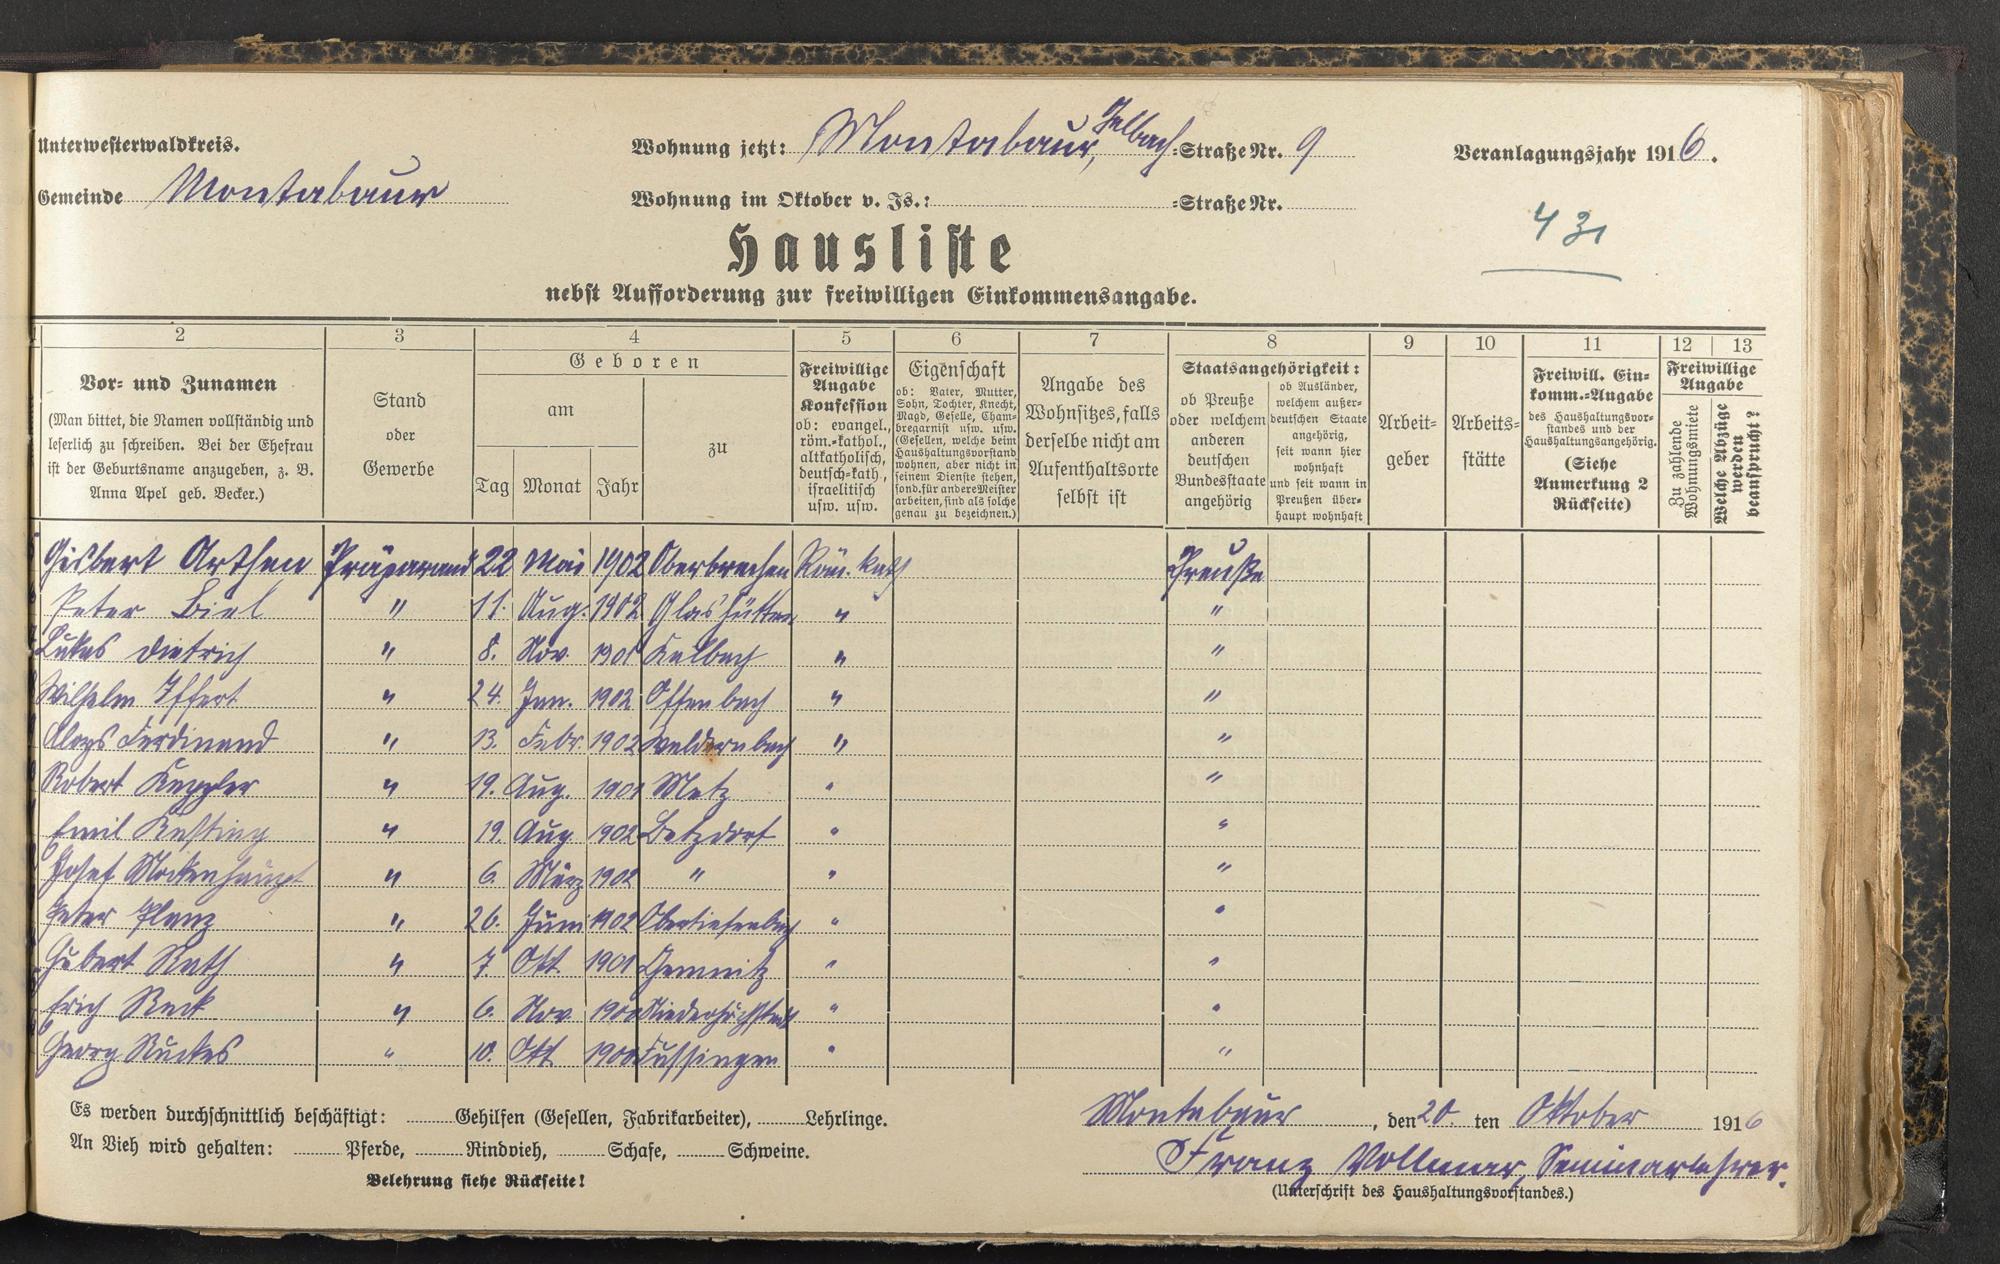 Unterwesterwaldkreis.
Gemeinde Montabaur
Wohnung jetzt: Montabaur, Gelbach=Straße Nr. 9
Wohnung im Oktober v. Js.: =Straße Nr.
Veranlagungsjahr 1916.
431
Hausliste
nebst Aufforderung zur freiwilligen Einkommensangabe.
1 2 3 4 5 6 7 8 9 10 11 12 13
Vor- und Zunamen
(Man bittet, die Namen vollständig und
leserlich zu schreiben. Bei der Ehefrau
ist der Geburtsname anzugeben, z. B.
Anna Apel geb. Becker.)
Stand
oder
Gewerbe
Geboren
am
Tag Monat Jahr
zu
Freiwillige
Angabe
Konfession
ob: evangel.,
röm.-kathol.,
altkatholisch,
deutsch-kath.,
israelitisch
usw. usw.
Eigenschaft
ob: Vater, Mutter,
Sohn, Tochter, Knecht,
Magd, Geselle, Cham-
bregarnist usw. usw.
(Gesellen, welche beim
Haushaltungsvorstand
wohnen, aber nicht in
seinem Dienste stehen,
sond. für andere Meister
arbeiten, sind als solche
genau zu bezeichnen.)
Angabe des
Wohnsitzes, falls
derselbe nicht am
Aufenthaltsorte
selbst ist
Staatsangehörigkeit:
ob Preuße
oder welchem
anderen
deutschen
Bundesstaate
angehörig
ob Ausländer,
welchem außer-
deutschen Staate
angehörig,
seit wann hier
wohnhaft
und seit wann in
Preußen über-
haupt wohnhaft
Arbeit-
geber
Arbeits-
stätte
Freiwill. Ein-
komm.-Angabe
des Haushaltungsvor-
standes und der
Haushaltungsangehörig.
(Siehe
Anmerkung 2
Rückseite)
Freiwillige
Angabe
Zu zahlende
Wohnungsmiete
Welche Abzüge
werden
beansprucht?
Gisbert Arthen Präparand 22 Mai 1902 Oberbrechen Röm. kath Preuße
Peter Biel " 11. Aug. 1902 Glashütten " "
Lukas Dietrich " 8. Nov. 1901 Kalbach " "
Wilhelm Iffert " 24. Jan. 1902 Offenbach " "
Aloys Ferdinand " 13. Febr. 1902 Waldernbach " "
Robert Keppler " 19. Aug. 1901 Metz " "
Emil Kesting " 19. Aug 1902 Betzdorf " "
Josef Mockenhaupt " 6. März 1902 " " "
Peter Planz " 26. Juni 1902 Obertiefenbach " "
Hubert Rath " 7 Okt 1901 Chemnitz " "
Erich Reck " 6. Nov. 1900 Niederhöchstadt " "
Georg Ruckes " 10. Okt 1900 Fussingen " "
Es werden durchschnittlich beschäftigt: Gehilfen (Gesellen, Fabrikarbeiter), Lehrlinge.
An Vieh wird gehalten: Pferde, Rindvieh, Schafe, Schweine.
Belehrung siehe Rückseite!
Montabaur, den 20. ten Oktober 1916
Franz Vollmar, Seminarlehrer.
(Unterschrift des Haushaltungsvorstandes.)